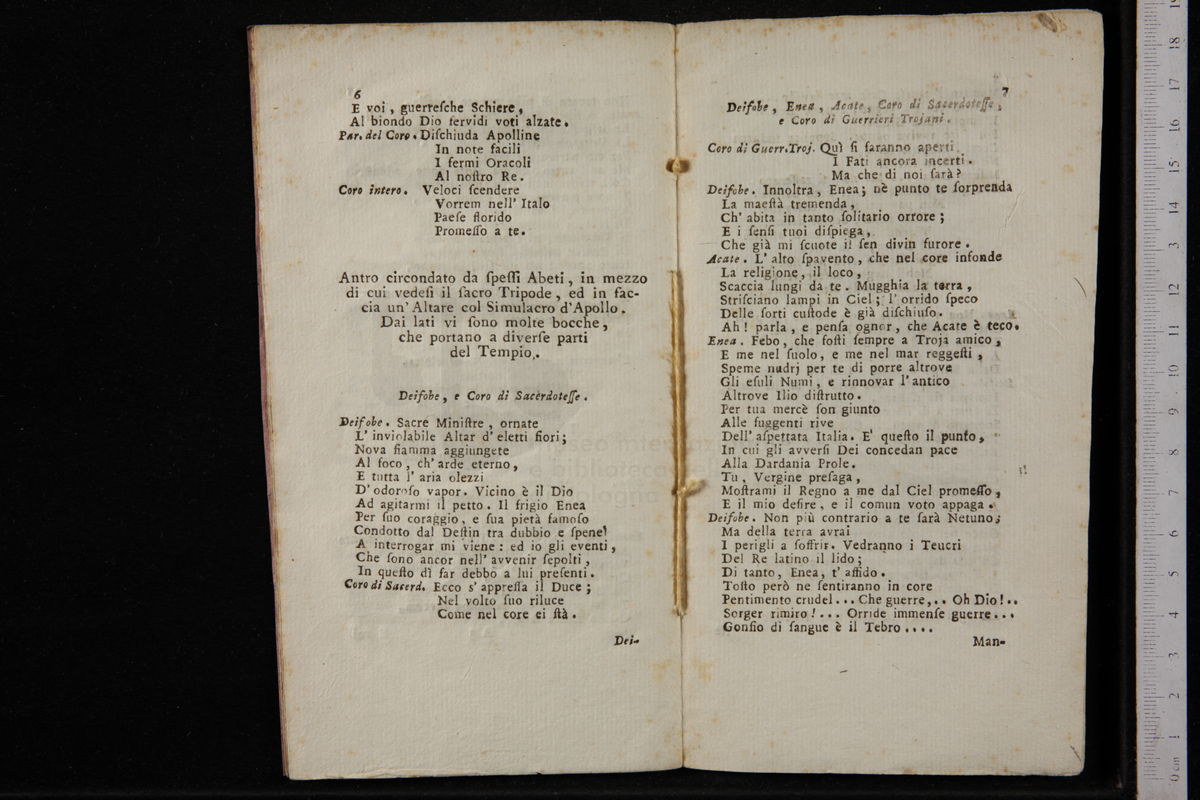 6
E voi, guerreſche Schiere,
Al biondo Dio fervidi voti alzate.
Par. del Coro. Diſchiuda Apolline
In note facili
I fermi Oracoli
Al noſtro Re.
Coro intero. Veloci ſcendere
Vorrem nell' Italo
Paeſe florido
Promeſſo a te.
Antro circondato da ſpeſſi Abeti, in mezzo
di cui vedeſi il ſacro Tripode, ed in fac-
cia un' Altare col Simulacro d'Apollo.
Dai lati vi ſono molte bocche,
che portano a diverſe parti
del Tempio.
Deifobe, e Coro di Sacerdoteſſe.
Deifobe. Sacre Miniſtre, ornate
L' inviolabile Altar d' eletti fiori;
Nova fiamma aggiungete
Al foco, ch' arde eterno,
E tutta l' aria olezzi
D' odoroſo vapor. Vicino è il Dio
Ad agitarmi il petto. Il frigio Enea
Per ſuo coraggio, e ſua pietà famoſo
Condotto dal Deſtin tra dubbio e ſpene
A interrogar mi viene: ed io gli eventi,
Che ſono ancor nell' avvenir ſepolti,
In queſto dì far debbo a lui preſenti.
Coro di Sacerd. Ecco s' appreſſa il Duce;
Nel volto ſuo riluce
Come nel core ei ſtà.
Dei-
7
Deifobe, Enea, Acate, Coro di Sacerdoteſſe,
e Coro di Guerrieri Trojani.
Coro di Guerr. Troj. Quì ſi ſaranno aperti
I Fati ancora incerti.
Ma che di noi ſarà?
Deifobe. Innoltra, Enea; nè punto te ſorprenda
La maeſtà tremenda,
Ch' abita in tanto ſolitario orrore;
E i ſenſi tuoi diſpiega,
Che già mi ſcuote il ſen divin furore.
Acate. L' alto ſpavento, che nel core infonde
La religione, il loco,
Scaccia lungi da te. Mugghia la terra,
Striſciano lampi in Ciel; l' orrido ſpeco
Delle ſorti cuſtode è già diſchiuſo.
Ah! parla, e penſa ognor, che Acate è teco.
Enea. Febo, che foſti ſempre a Troja amico,
E me nel ſuolo, e me nel mar reggeſti,
Speme nudrj per te di porre altrove
Gli eſuli Numi, e rinnovar l' antico
Altrove Ilio diſtrutto.
Per tua mercè ſon giunto
Alle fuggenti rive
Dell' aſpettata Italia. E' queſto il punto,
In cui gli avverſi Dei concedan pace
Alla Dardania Prole.
Tu, Vergine preſaga,
Moſtrami il Regno a me dal Ciel promeſſo,
E il mio deſire, e il comun voto appaga.
Deifobe. Non più contrario a te ſarà Netuno;
Ma della terra avrai
I perigli a ſoffrir. Vedranno i Teucri
Del Re latino il lido;
Di tanto, Enea, t' affido.
Toſto però ne ſentiranno in core
Pentimento crudel... Che guerre,.. Oh Dio!..
Sorger rimiro!... Orride immenſe guerre...
Gonfio di ſangue è il Tebro....
Man-